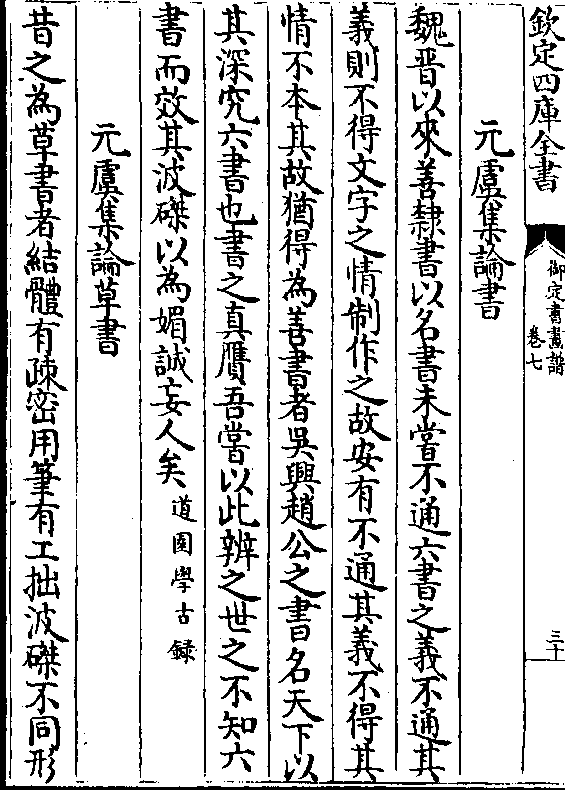 欽定四庫全書
御定書畫譜
卷七
三十
元虞集論書
魏晉以來善隸書以名書未嘗不通六書之義不通其
義則不得文字之情制作之故安有不通其義不得其
情不本其故猶得為善書者吳興趙公之書名天下以
其深究六書也書之真贋吾嘗以此辨之世之不知六
書而效其波磔以為媚誠妄人矣道園學古録
元虞集論草書
昔之為草書者結體有疎密用筆有工拙波磔不同形